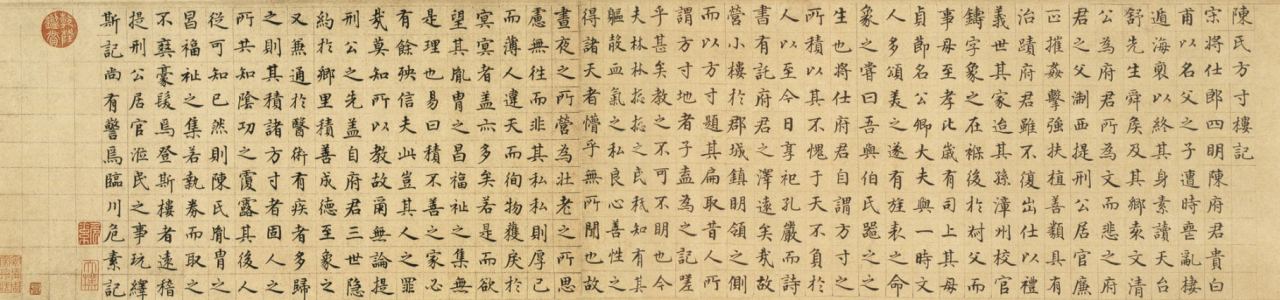 陳氏方寸樓記
宋將仕郎四明陳府君貴白
甫以名父之子遭時喪亂棲
遁海裔以終其身素讀天台
舒先生舜矦及其鄉袁文清
公為府君所為文而悲之府
君之父淛西提刑公居官廉
正摧姦擊強扶植善類具有
治蹟府君雖不復出仕以禮
義世其家迨其孫漳州校官
鑄字象之在褓後於父而
事母至孝比歲有司上其母
貞節名公卿大夫與一時文
人多頌美之遂有旌表之命
象之嘗曰吾與伯氏之之
生也將仕府君自謂方寸之
所積以其不愧于天不負於
人以至今日享祀孔嚴而詩
書有託府君之澤遠矣哉故
營小樓於郡城鎮明領之側
而以方寸題其扁取昔人所
謂方寸地者子盍為之記嗟
乎甚矣教之不可不明也今
夫林林揔揔之民秖知有其
軀殼血氣之私良心善性之
得諸天者懵乎無所聞也故
晝夜之所營為壯老之所思
慮無往而非其私私則厚己
而薄人違天而徇物獲戾於
冥冥者蓋亦多矣若是而欲
望其胤胄之昌福祉之集無
是理也易曰積不善之家必
有餘殃信夫此豈其人之罪
哉莫知所以教故爾無論提
刑公之先蓋自府君三世隱
約於鄉里積善成德至象之
又兼通於醫術有疾者多歸
之則其積諸方寸者固人
所共知陰功之覆露其後人
從可知已然則陳氏胤胄之
昌福祉之集若執券而取之
不爽豪髮焉登斯樓者遠稽
提刑公居官涖民之事玩繹
斯記尚有警焉臨川危素記